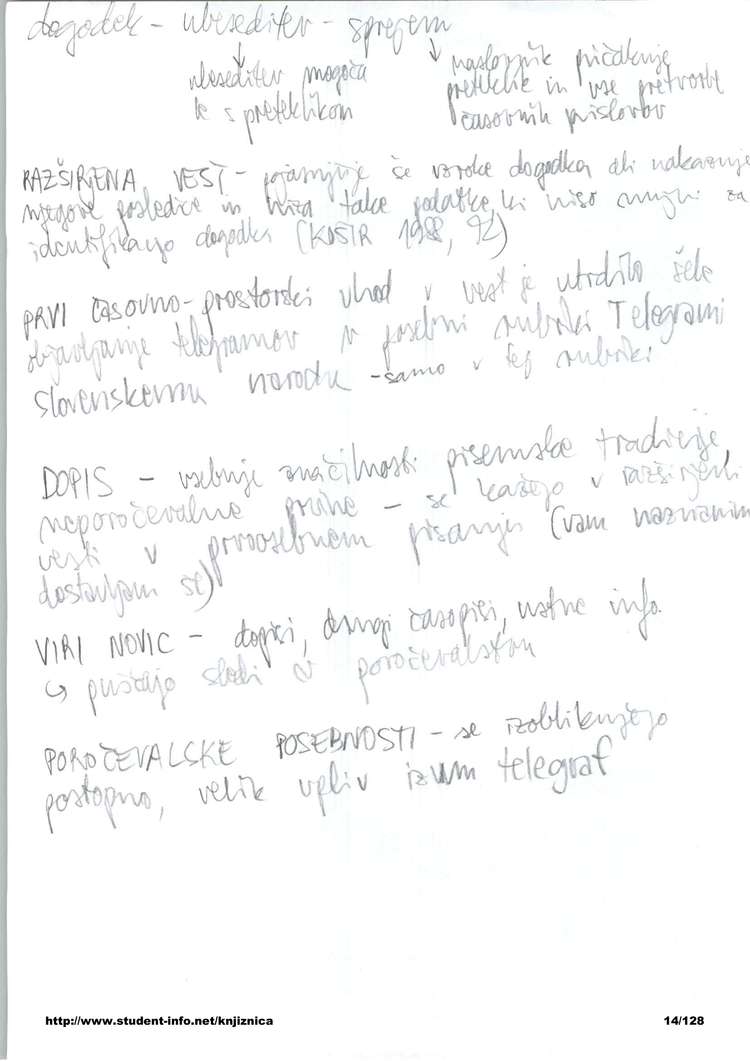 dogodek - ubeseditev - sprejem
↓ ↓
ubeseditev mogoča
le s preteklikom
naslovnik pričakuje
preteklik in vse pretvorbe
časovnih prislovov
RAZŠIRJENA VEST - pojasnjuje še vzroke dogodka ali nakazuje
njegove posledice in niza take podatke, ki niso nujni za
identifikacijo dogodka (KOŠIR 1988, 92)
PRVI ČASOVNO-prostorski vhod v vest je utrdilo šele
objavljanje telegramov v posebni rubriki Telegrami
slovenskemu narodu - samo v tej rubriki
DOPIS - vsebuje značilnosti pisemske tradicije,
neporočevalne prvine - se kažejo v razširjeni
vesti v prvoosebnem pisanju (vam naznanim
dostavljam še)
VIRI NOVIC - dopisi, drugi časopisi, ustne info.
↳ puščajo sledi v poročevalstvu
POROČEVALSKE POSEBNOSTI - se izoblikujejo
postopno, velik vpliv izum telegraf
http://www.student-info.net/knjiznica 14/128